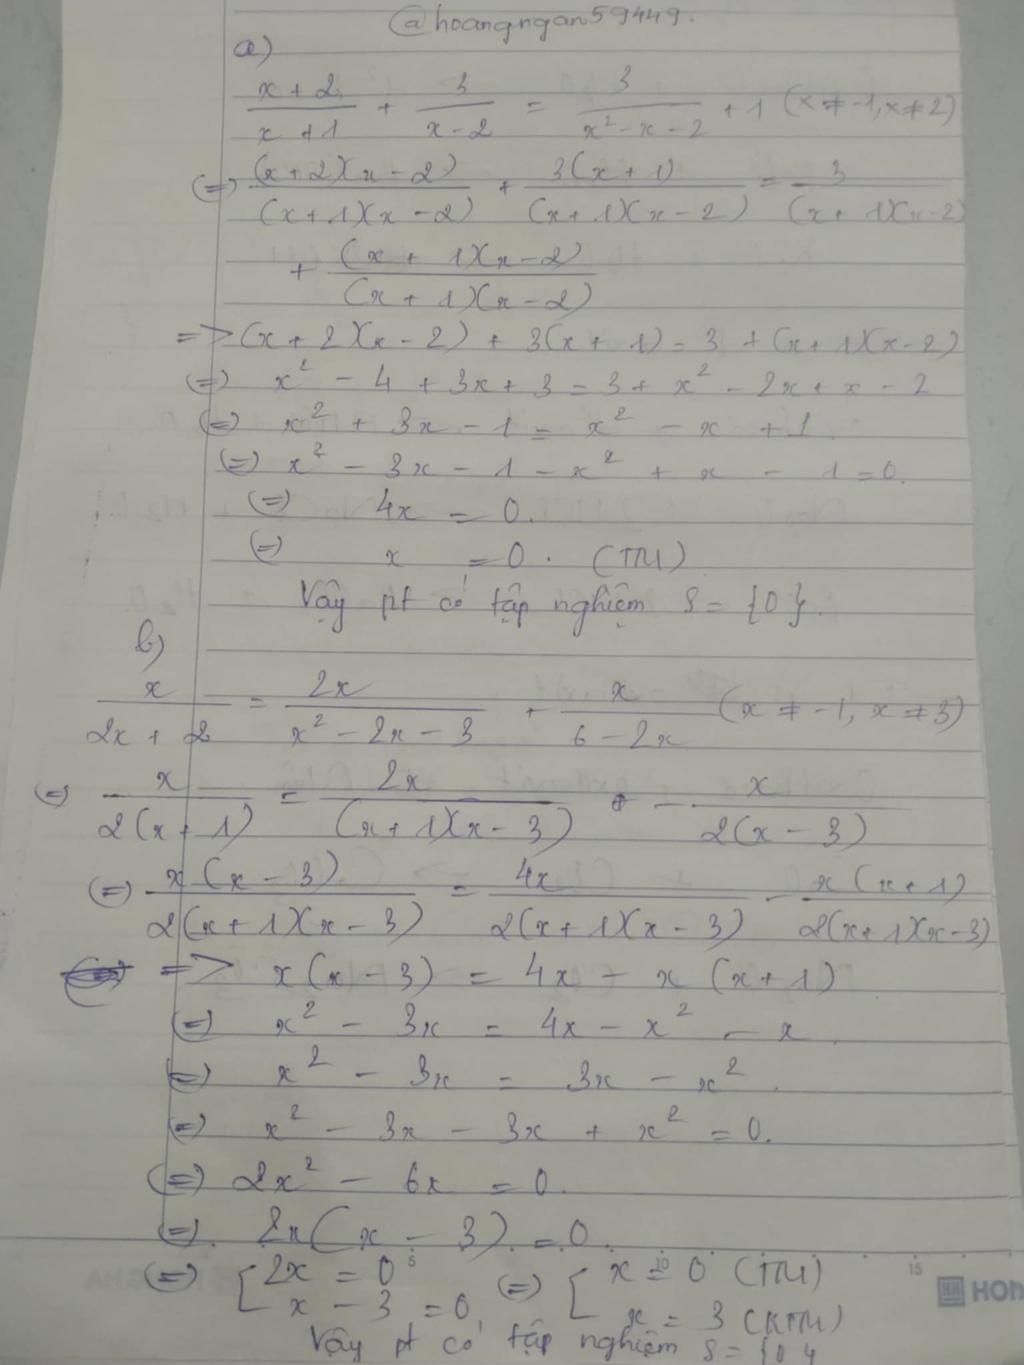 @hoangngan59449.
a)
\frac{x+2}{x+1} + \frac{3}{x-2} = \frac{3}{x² - x - 2} + 1 (x ≠ -1, x ≠ 2)
(=) \frac{(x+2)(x-2)}{(x+1)(x-2)} + \frac{3(x+1)}{(x+1)(x-2)} = \frac{3}{(x+1)(x-2)}
+ \frac{(x+1)(x-2)}{(x+1)(x-2)}
=> (x+2)(x-2) + 3(x+1) = 3 + (x+1)(x-2)
(=) x² - 4 + 3x + 3 = 3 + x² - 2x + x - 2
(=) x² + 3x - 1 = x² - x + 1
(=) x² - 3x - 1 - x² + x - 1 = 0.
(=) 4x = 0.
(=) x = 0. (TM)
Vậy pt có tập nghiệm S = {0}.
b)
\frac{x}{2x+2} = \frac{2x}{x² - 2x - 3} + \frac{x}{6-2x} (x ≠ -1, x ≠ 3)
(=) \frac{x}{2(x+1)} = \frac{2x}{(x+1)(x-3)} - \frac{x}{2(x-3)}
(=) \frac{x(x-3)}{2(x+1)(x-3)} = \frac{4x}{2(x+1)(x-3)} - \frac{x(x+1)}{2(x+1)(x-3)}
=> x(x-3) = 4x - x(x+1)
(=) x² - 3x = 4x - x² - x
(=) x² - 3x = 3x - x².
(=) x² - 3x - 3x + x² = 0.
(=) 2x² - 6x = 0.
(=). 2x(x - 3) = 0.
(=) [2x = 0 (=) [x = 0 (TM)
x - 3 = 0 x = 3 (KTM)
5 10 15
HON
Vậy pt có tập nghiệm S = {0}